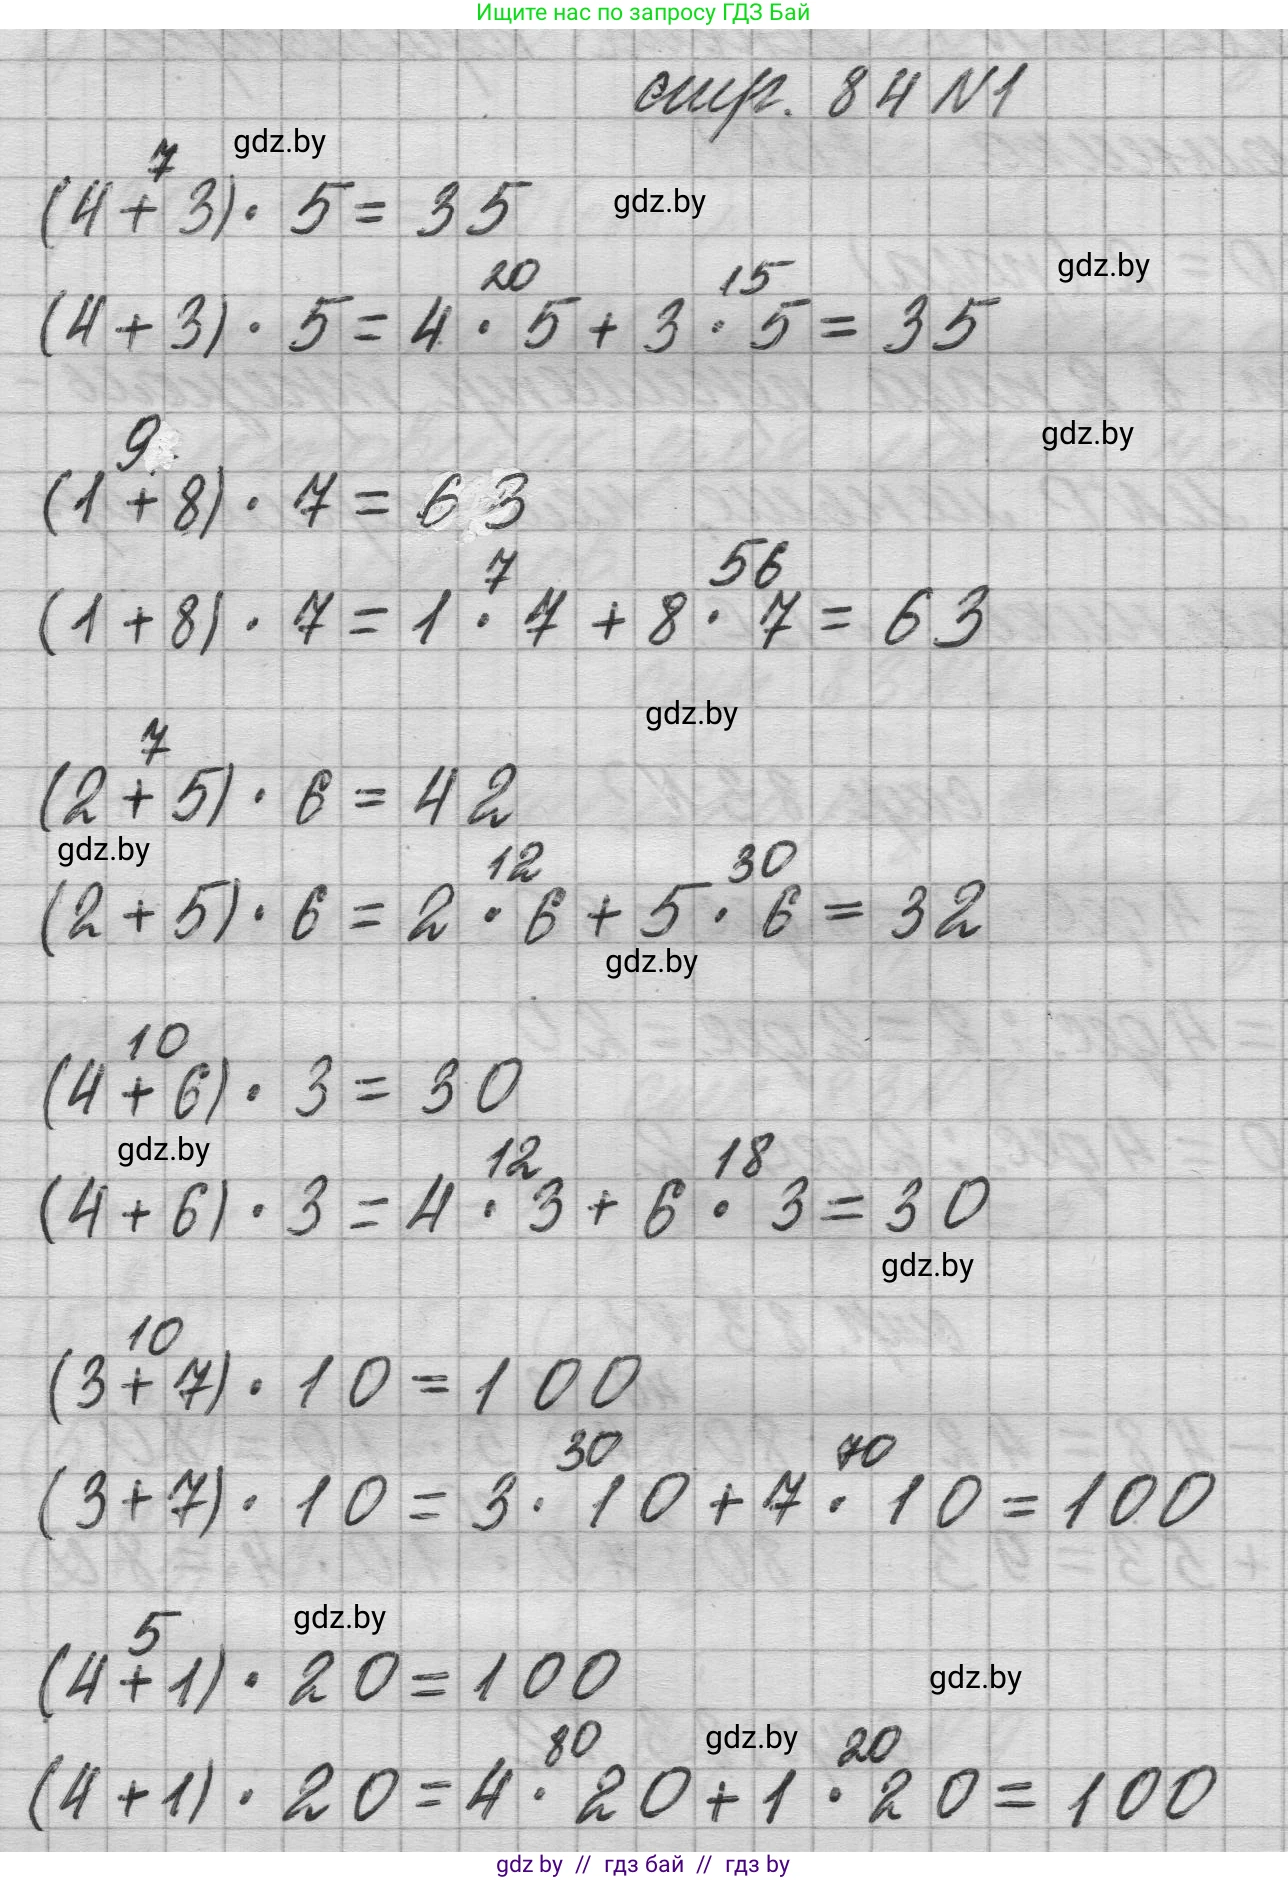 Ищите нас по запросу ГДЗ Бай
стр. 84 №1
gdz.by
7
(4+3)· 5= 35
gdz.by
gdz.by
20 15
(4+3)· 5=4· 5+3· 5=35
gdz.by
9
(1+8)· 7=63
7 56
(1+8)· 7=1· 7+8· 7=63
gdz.by
7
(2+5)· 6=42
gdz.by
12 30
(2+5)· 6=2· 6+5· 6=32
gdz.by
10
(4+6)· 3=30
gdz.by
12 18
(4+6)· 3=4· 3+6· 3=30
gdz.by
10
(3+7)· 10=100
30 70
(3+7)· 10=3· 10+7· 10=100
5
gdz.by
(4+1)· 20=100
gdz.by
80 gdz.by 20
(4+1)· 20=4· 20+1· 20=100
gdz by // гдз бай // гдз by